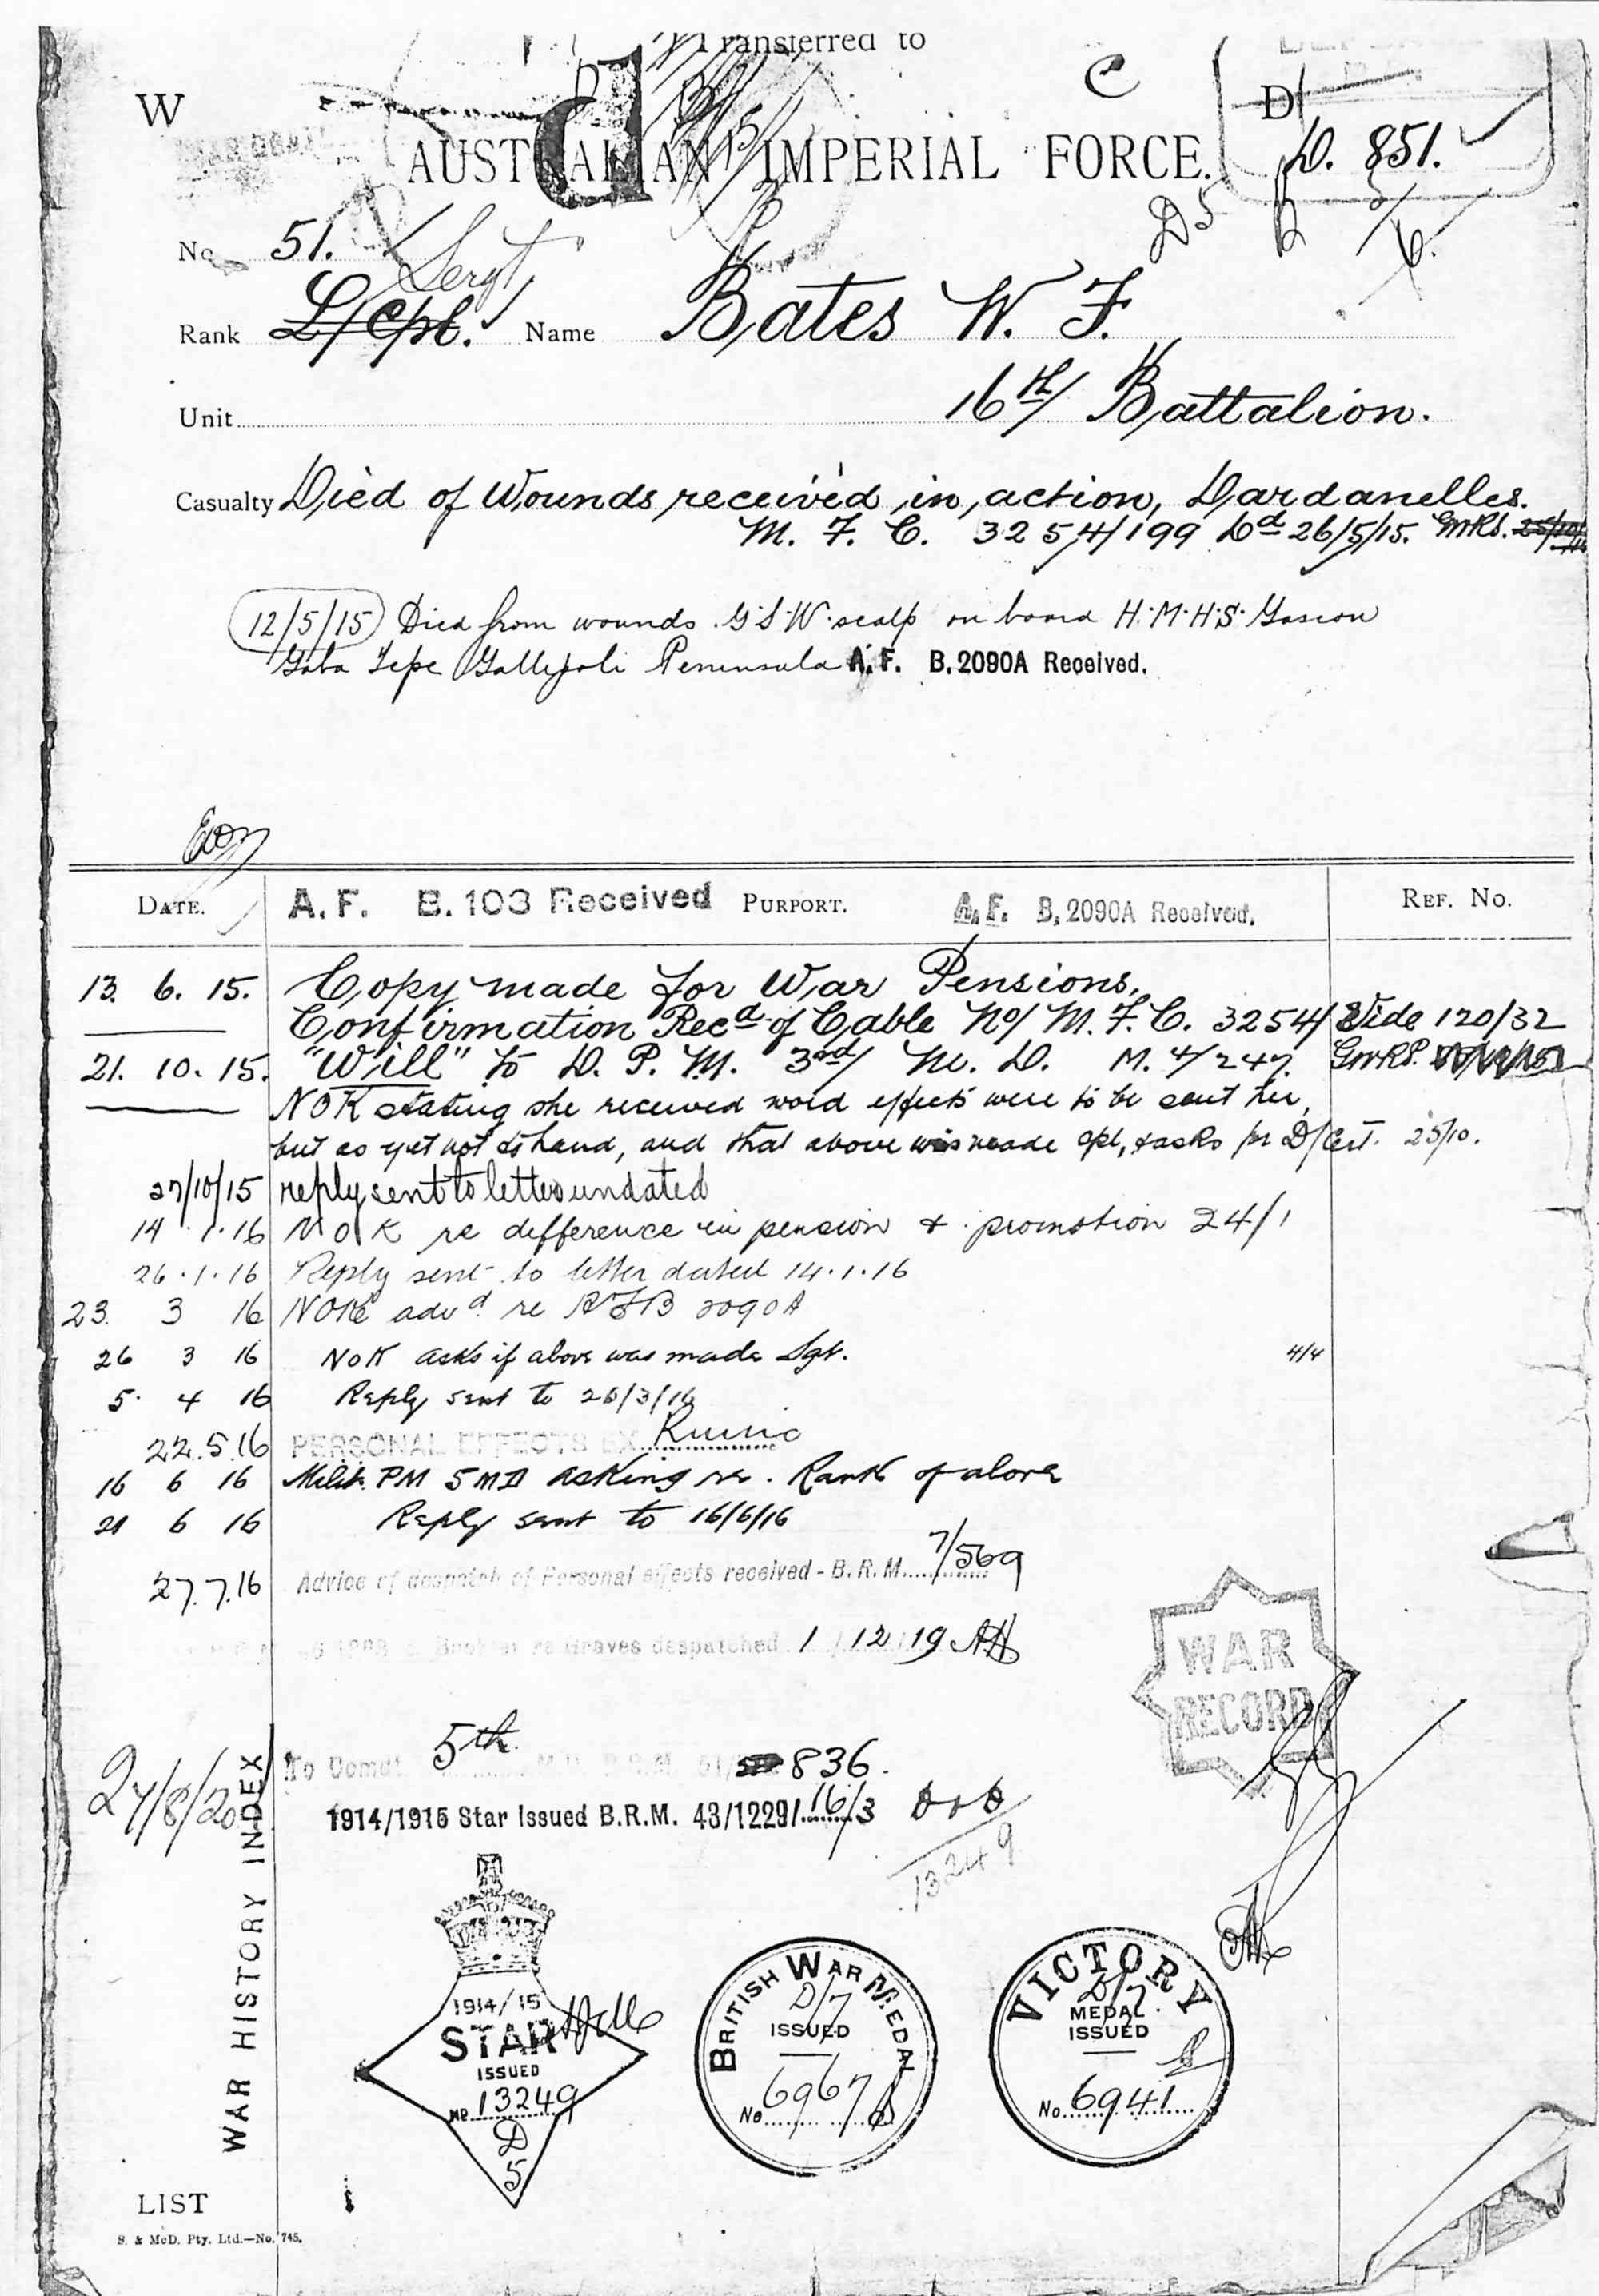 Transferred to
C
W
D
AUSTRALIAN IMPERIAL FORCE.
D. 851.
D5
No 51.
Sergt
Rank L/Cpl. Name Bates W. F.
Unit 16th/ Battalion.
Casualty Died of Wounds received in action, Dardanelles.
M. F. C. 3254/199 Dd 26/5/15. GMRS.
12/5/15 Died from wounds G.S.W. scalp on board H.M.H.S. Gascon
Gaba Tepe Gallipoli Peninsula A.F. B.2090A Received.
DATE. A.F. B.103 Received PURPORT. A.F. B.2090A Received. REF. No.
13. 6. 15. Copy made for War Pensions.
Confirmation Recd of Cable No/ M.F.C. 3254/ Vide 120/32
21. 10. 15. "Will" to D. P. M. 3rd/ M. D. M. 4/247.
NOK stating she received word effects were to be sent her,
but as yet not to hand, and that above was made cpl, & asks for D/Cert. 25/10.
27/10/15 reply sent to letter undated
14 . 1 . 16 NOK re difference in pension & promotion 24/1
26 . 1 . 16 Reply sent to letter dated 14.1.16
23. 3 16 NOK advd re AFB 2090A
26 3 16 NOK asks if above was made Sgt. 4/4
5. 4 16 Reply sent to 26/3/16
22.5.16 PERSONAL EFFECTS EX Runic
16 6 16 Milit. PM 5 MD asking re. Rank of above
21 6 16 Reply sent to 16/6/16
27.7.16 Advice of despatch of Personal effects received - B.R.M. 7/569
Graves despatched 1 / 12 / 19
WAR
RECORD
27/8/20
To Comdt 5th 836.
1914/1915 Star Issued B.R.M. 43/1229/ 16/3
13249
WAR HISTORY INDEX
1914/15
STAR
ISSUED
No 13249
D
5
BRITISH WAR MEDAL
D/7
ISSUED
No 6967
VICTORY
D/7
MEDAL
ISSUED
No 6941
LIST
S. & McD. Pty. Ltd.—No. 745.